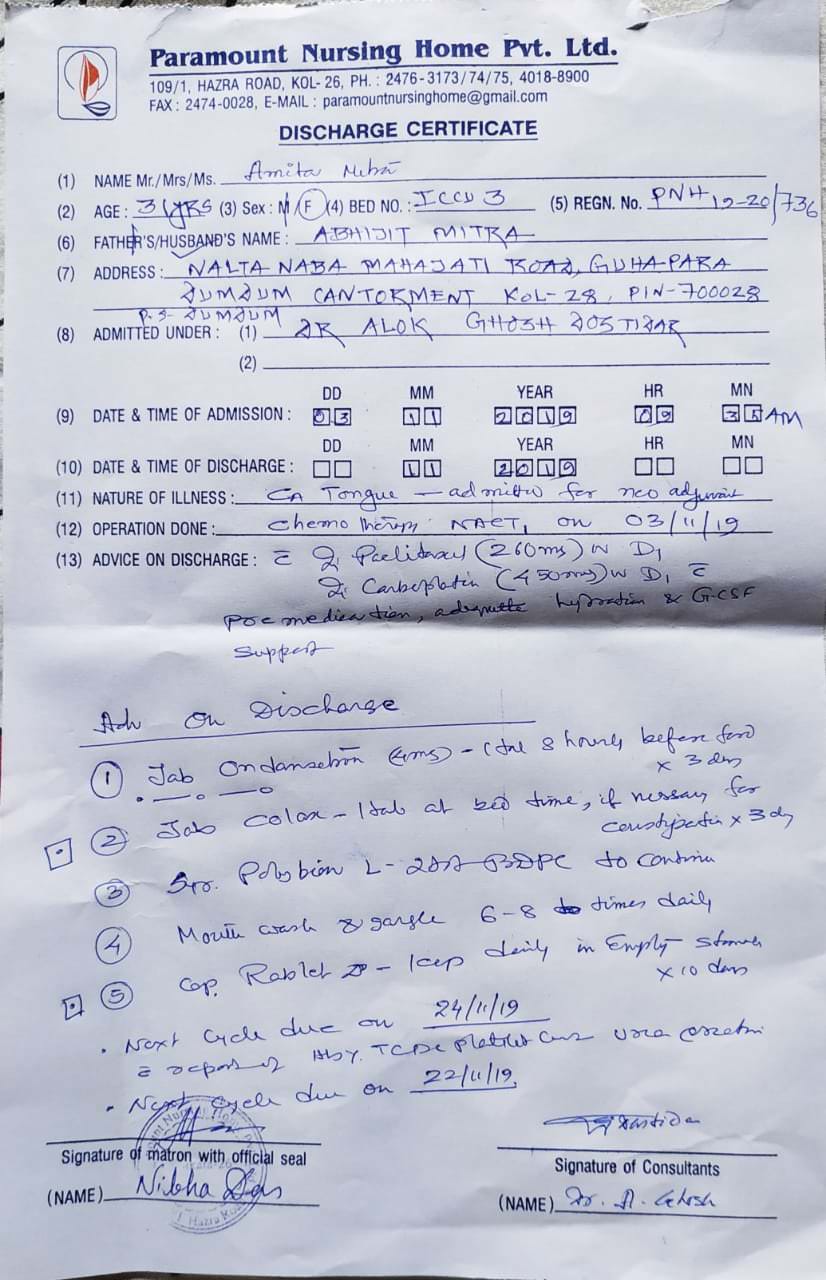 Paramount Nursing Home Pvt. Ltd.
109/1, HAZRA ROAD, KOL- 26, PH. : 2476-3173/74/75, 4018-8900
FAX : 2474-0028, E-MAIL : paramountnursinghome@gmail.com
DISCHARGE CERTIFICATE
(1) NAME Mr./Mrs/Ms. Amita
(2) AGE : 31YRS (3) Sex : M/F (4) BED NO. : ICCU 3 (5) REGN. No. PNH 19-20/736
(6) FATHER'S/HUSBAND'S NAME : ABHIJIT MITRA
(7) ADDRESS : NALTA NABA MAHAJATI ROAD, GUHA-PARA
DUMDUM CANTORMENT KOL-28, PIN-700028
P.S- DUMDUM
(8) ADMITTED UNDER : (1) DR ALOK GHOSH DOSTIDAR
(2)
DD MM YEAR HR MN
(9) DATE & TIME OF ADMISSION : 03 11 2019 09 35 AM
DD MM YEAR HR MN
(10) DATE & TIME OF DISCHARGE : 11 2019
(11) NATURE OF ILLNESS : CA Tongue - admitted for neo adjuvant
(12) OPERATION DONE : chemotherapy NACT, on 03/11/19
(13) ADVICE ON DISCHARGE : c̄ Inj. Paclitaxel (260mg) IV D1
Inj. Carboplatin (450mg) IV D1 c̄
premedication, adequate hydration & G-CSF
support
Adv on Discharge
① Tab Ondansetron (4mg) - 1 tab 8 hourly before food
x 3 days
② Tab Colax - 1 tab at bed time, if nessary for
constipation x 3 dy
③ Syr. Polybion L - BDPC to continue
④ Mouth wash & gargle 6-8 times daily
⑤ Cap. Rablet - 1 cap daily in Empty stomach
x 10 days
• Next Cycle due on 24/11/19
c̄ report of Hb%, TC, DC platelet urea creatin
• Next Cycle due on 22/11/19.
Signature of matron with official seal
Signature of Consultants
(NAME) Nibha Das
(NAME) Dr. A. Ghosh